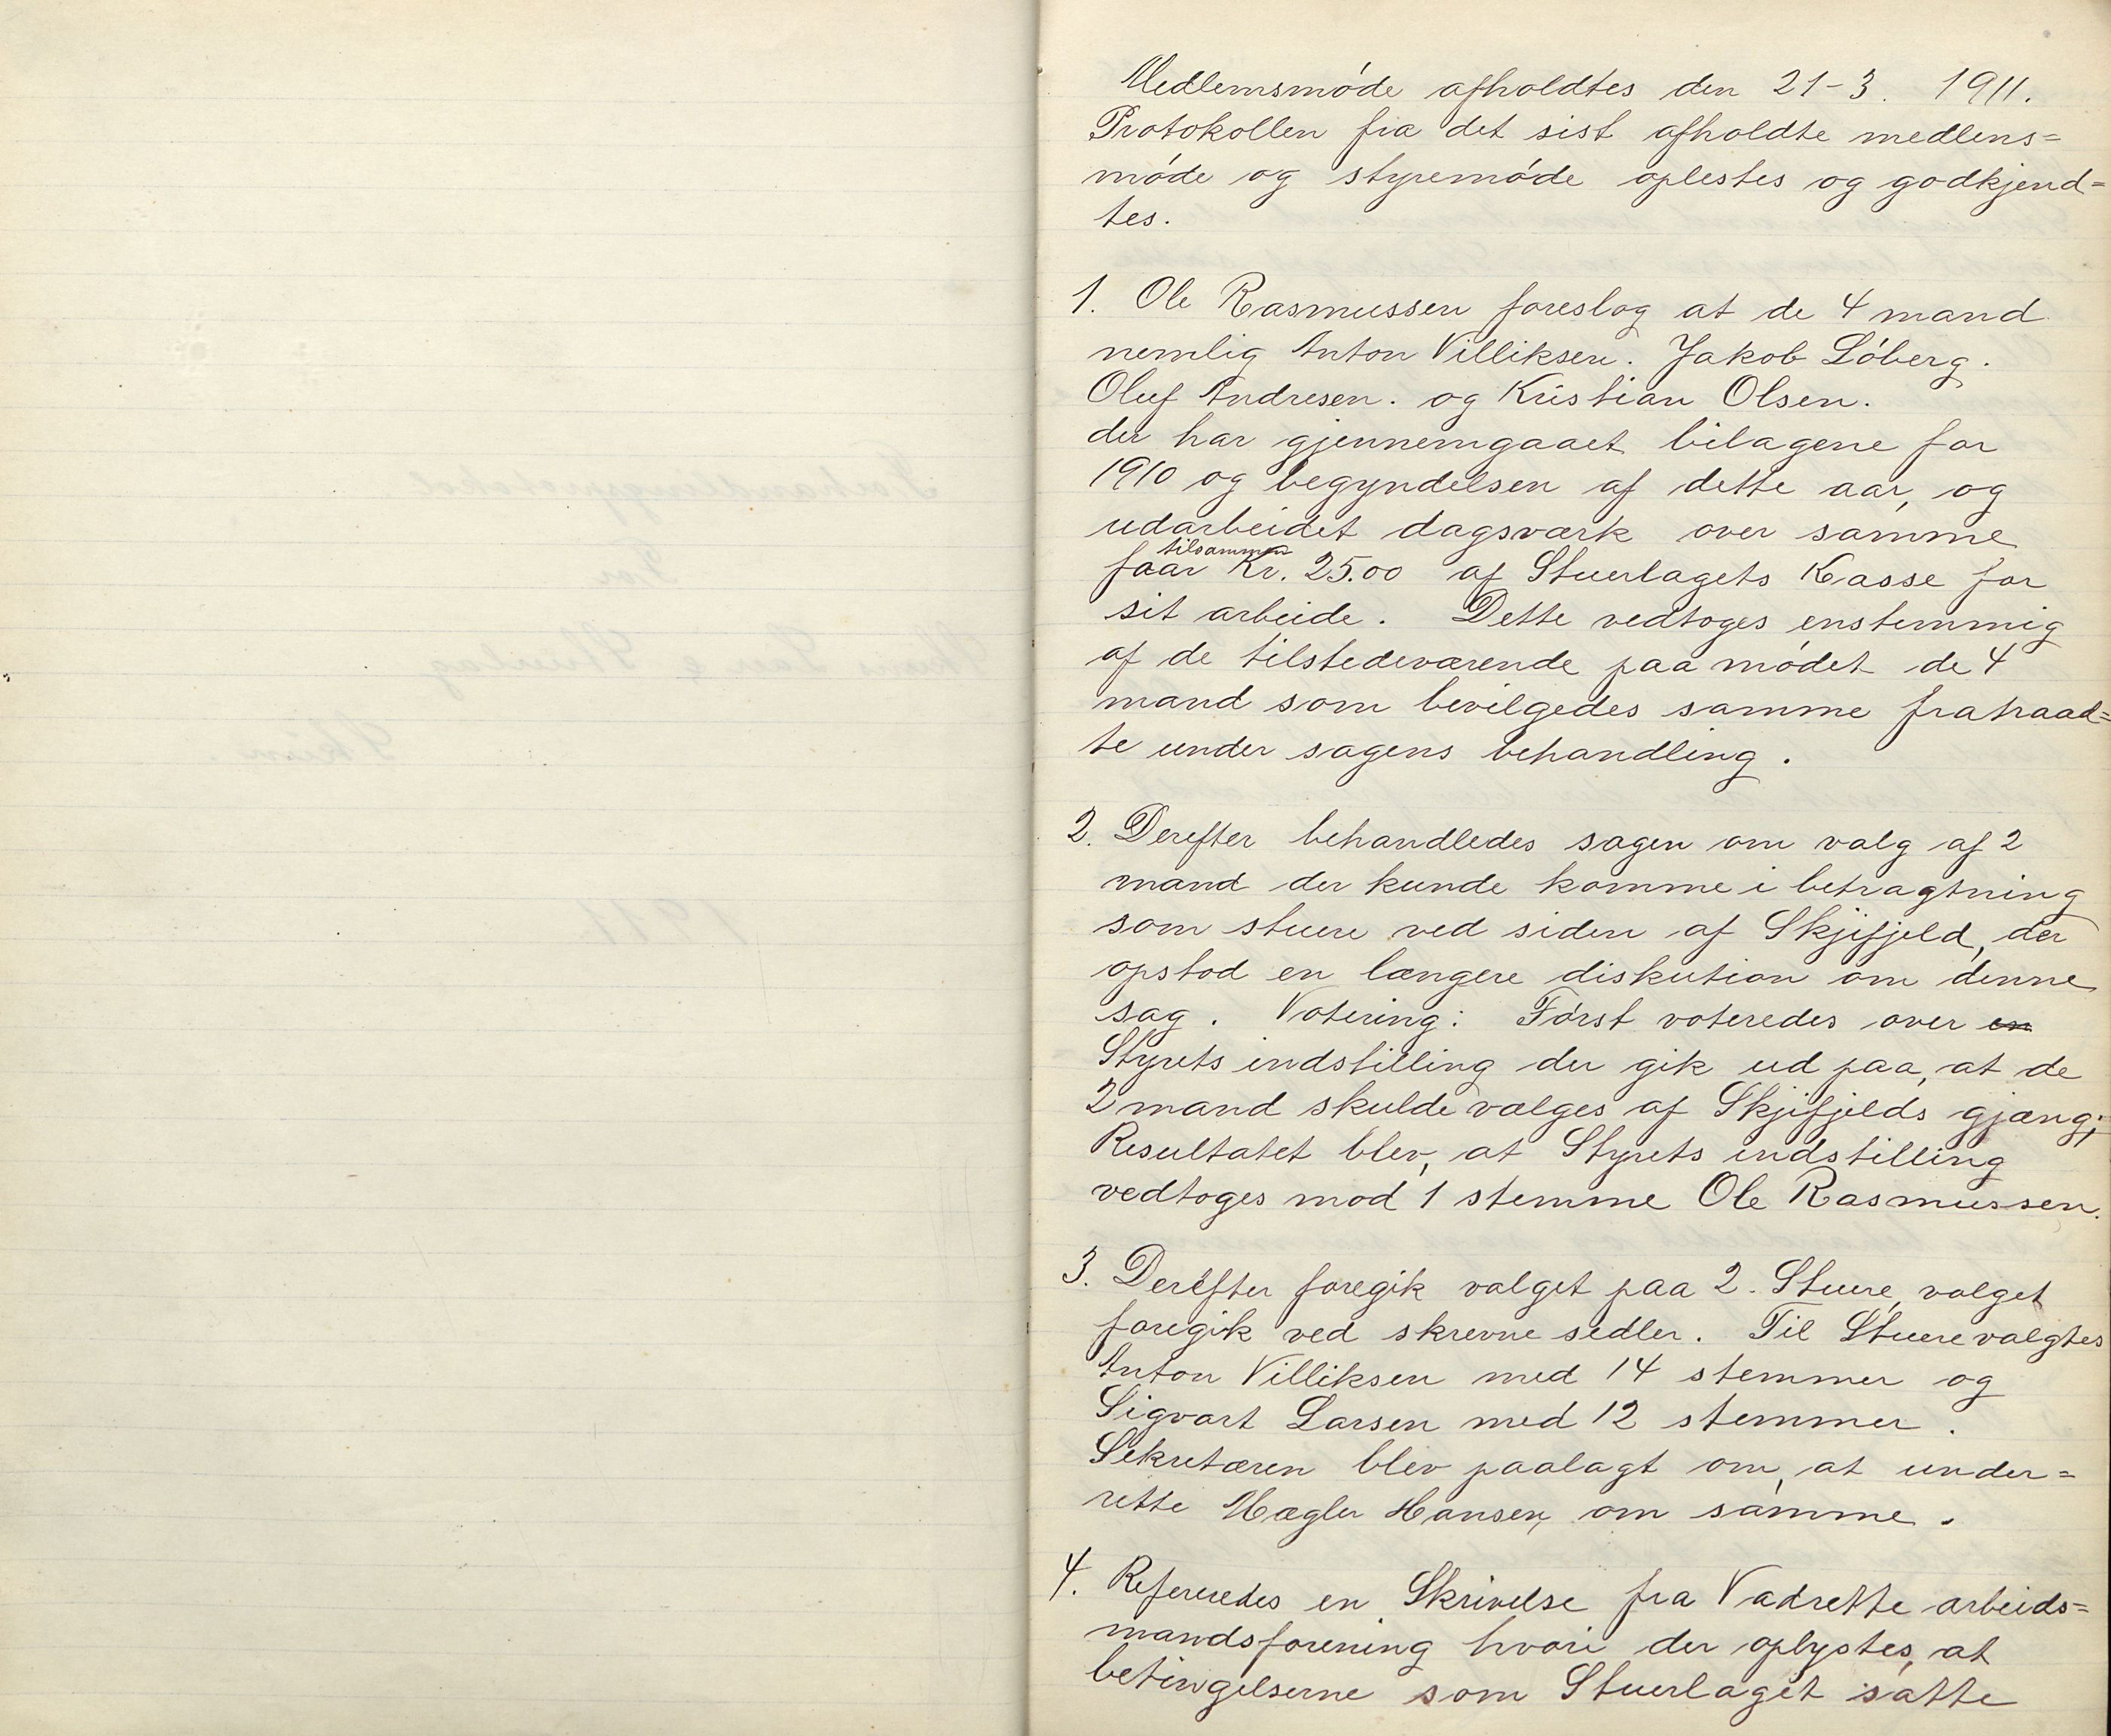 Medlemsmóde afholdtes den 21-3. 1911.
Protokollen fra det sist afholdte medlens=
móde og styremóde oplestes og godkjend=
tes.
1. Ole Rasmussen foreslog at de 4 mand
nemlig Anton Villiksen. Jakob Lóberg.
Oluf Andresen. og Kristian Olsen.
der har gjennemgaaet bilagene for
1910 og begyndelsen af dette aar, og
udarbeidet dagsværk over samme
tilsammen
faar Kr. 25.00 af Stuerlagets Kasse for
sit arbeide. Dette vedtoges enstemmig
af de tilstedeværende paa módet de 4
mand som bevilgedes samme fratraad=
te under sagens behandling.
2. Derefter behandledes sagen om valg af 2
mand der kunde komme i betragtning
som stuere ved siden af Skjifjeld, der
opstod en længere diskution om denne
sag. Votering: Fórst voteredes over en
Styrets indstilling der gik ud paa, at de
2 mand skulde vælges af Skjifjelds gjæng;
Resultatet blev, at Styrets indstilling
vedtoges mod 1 stemme Ole Rasmussen.
3. Derefter foregik valget paa 2. Stuere, valget
foregik ved skrevne sedler. Til Stuere valgtes
Anton Villiksen med 14 stemmer og
Sigvart Larsen med 12 stemmer.
Sekretæren blev paalagt om, at under=
rette Mægler Hansen, om samme.
4. Refereredes en Skrivelse fra Vadrette arbeids=
mandsforening hvori der oplystes, at
betingelserne som Stuerlaget satte